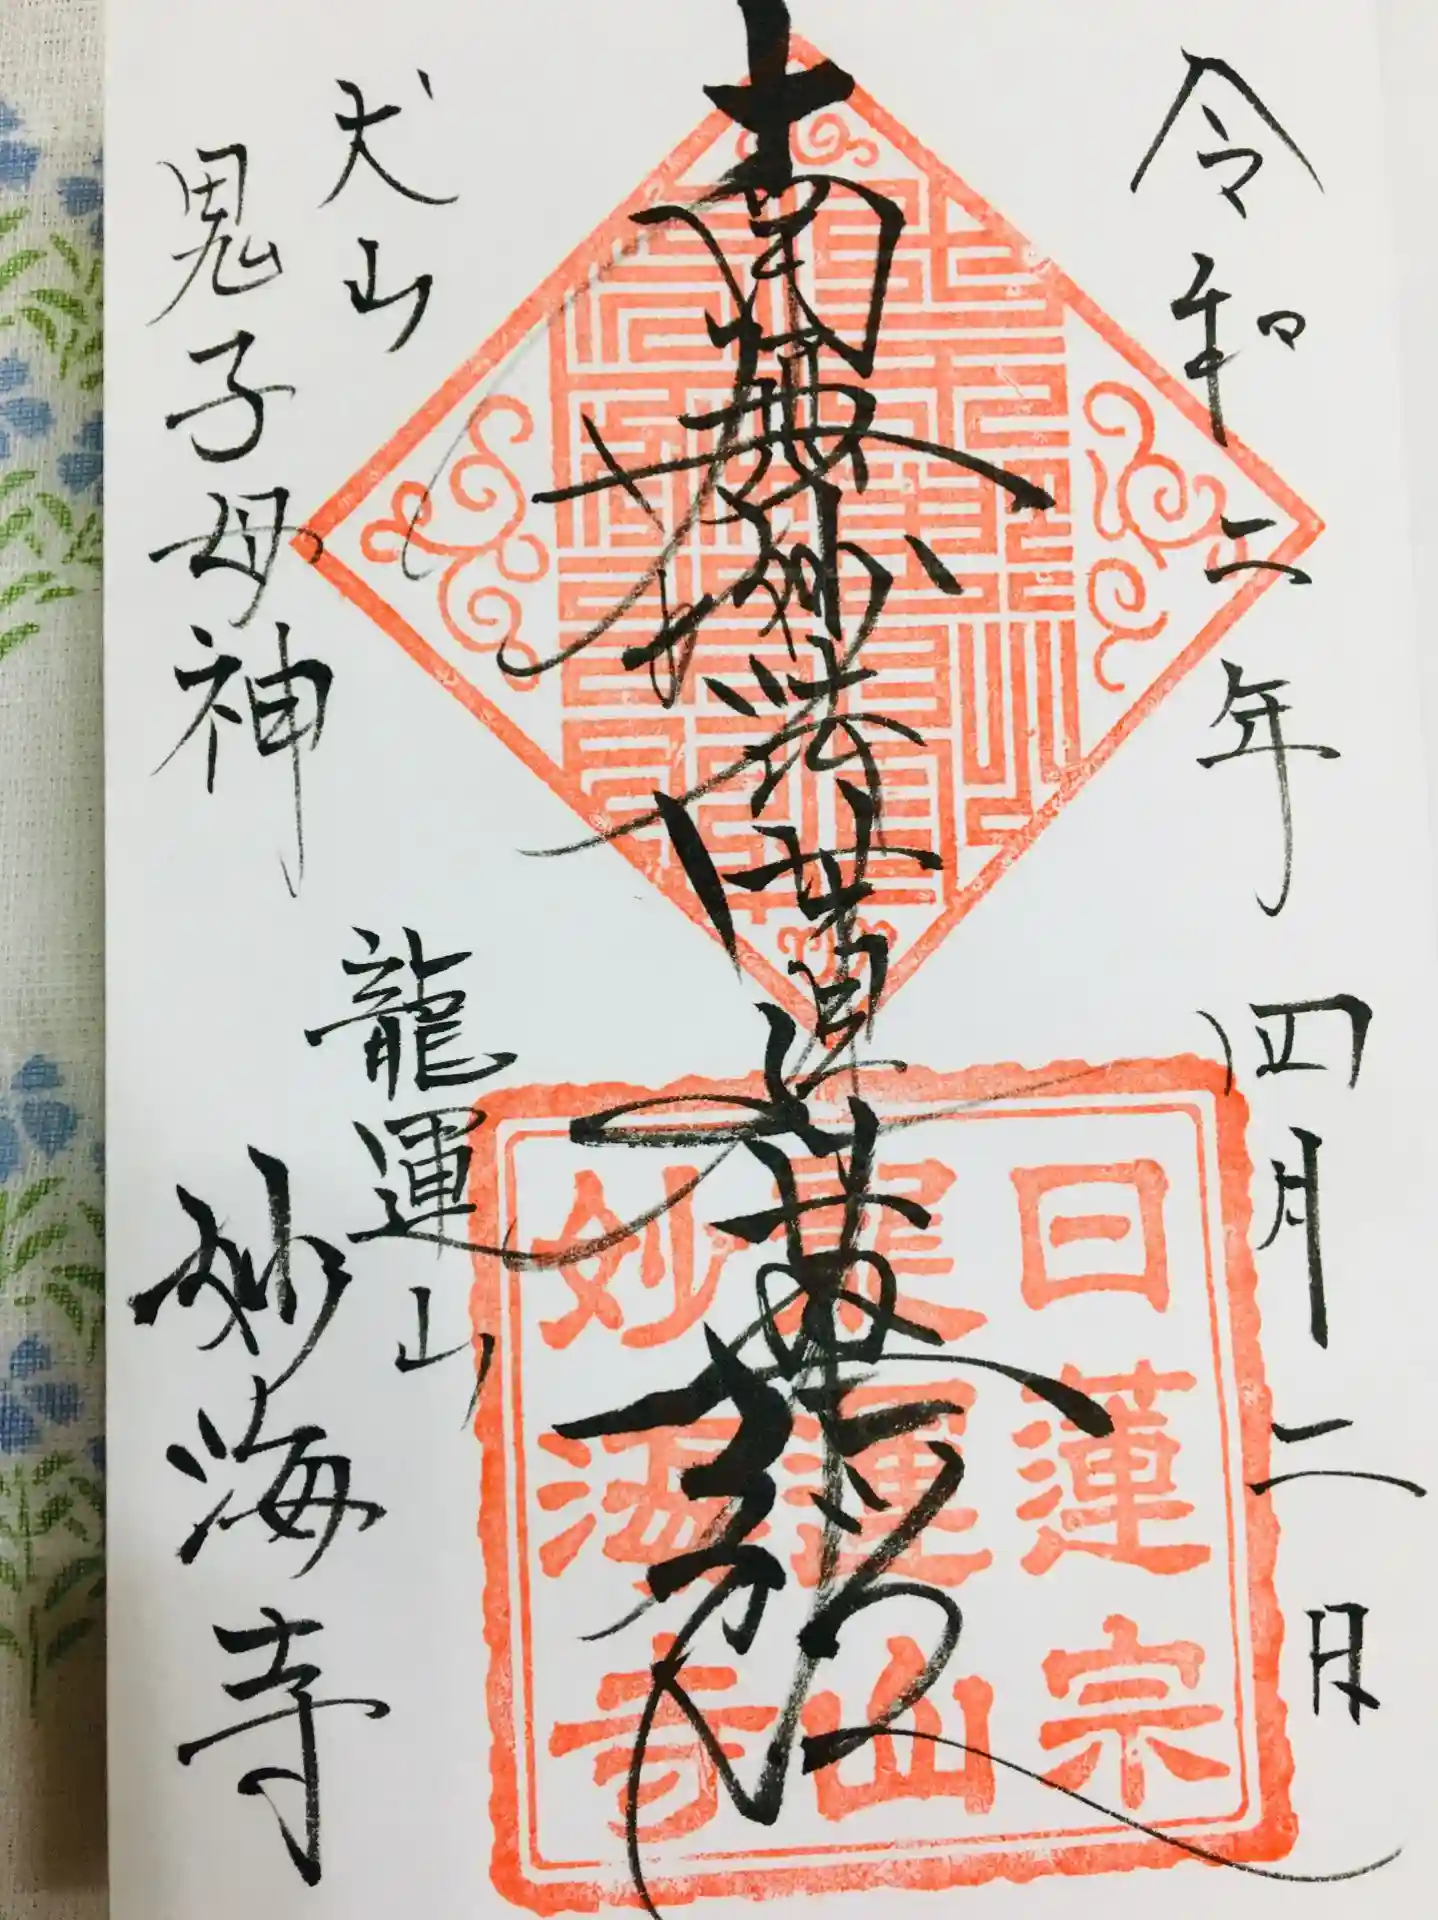 令和二年四月二日
南無妙法蓮華経
犬山
鬼子母神
龍運山
妙海寺
日蓮宗
龍運山
妙海寺